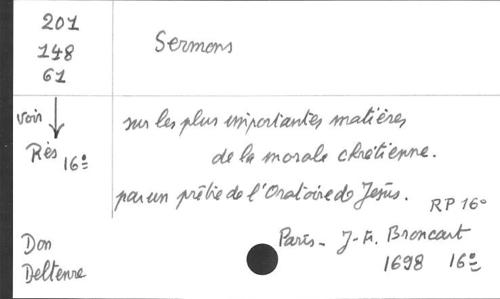 201
148
61
Sermons
voir
Rés 16º
sur les plus importantes matières
de la morale chrétienne.
par un prêtre de l'Oratoire de Jésus.
RP 16º
Paris - J-Fr. Broncart
1698 16º
Don
Deltenre